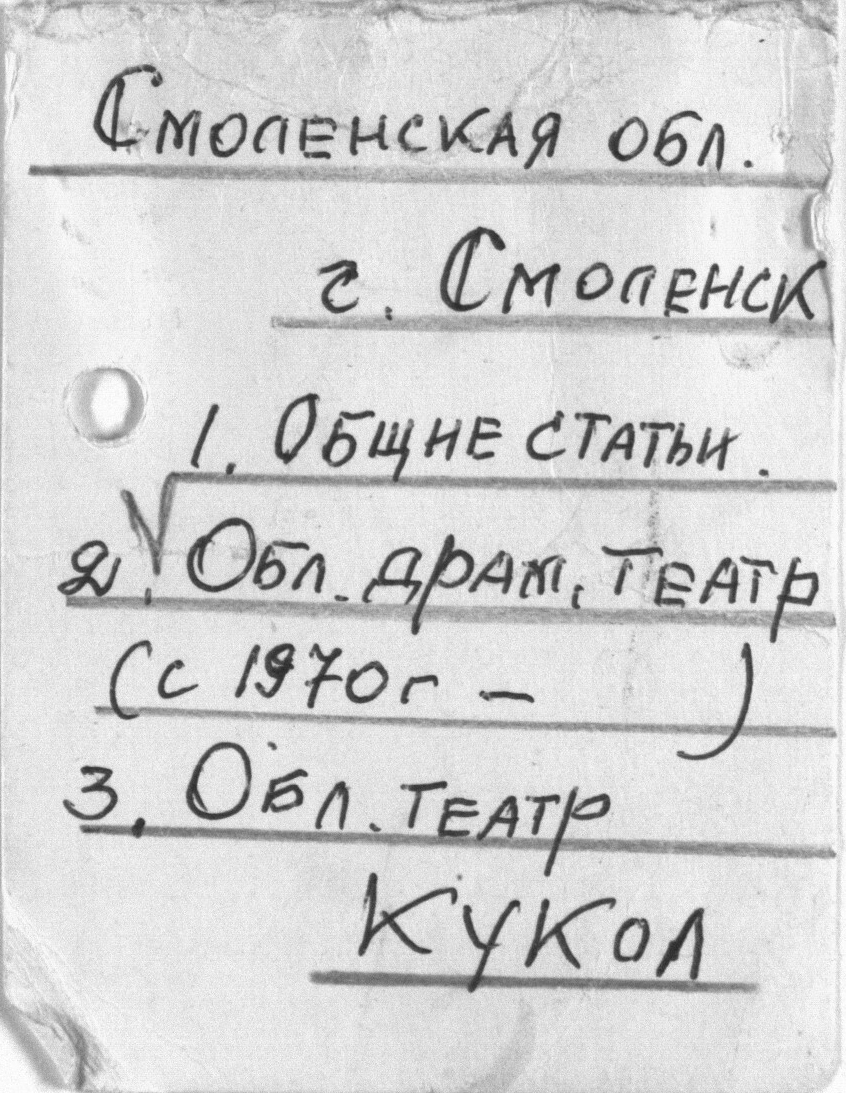 Смоленская обл.
г. Смоленск
1. Общие статьи.
2. Обл. драм. театр
(с 1970г – )
3. Обл. театр
кукол